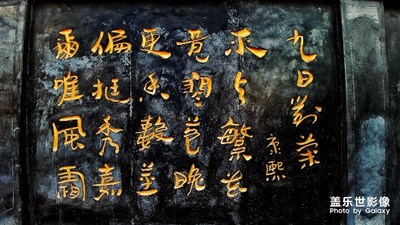 九日對菊
康熙
不与繁花
竞寒苞晚
更香數莖
偏挺秀嘉
爾唯風霜
盖乐世影像
Photo by Galaxy